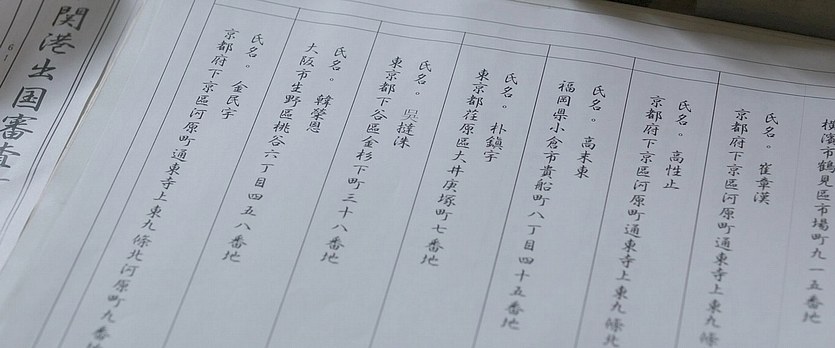 横濱市鶴見區市場町九一五番地
氏名。崔章漢
京都府下京區河原町通東寺上東九條
氏名。高性止
京都府下京區河原町通東寺上東九條北
氏名。高末東
福岡県小倉市貴船町八丁目四十五番地
氏名。朴鎮宇
東京都荏原區大井庚塚町七番地
氏名。吳撻洙
東京都下谷區金杉下町三十八番地
氏名。韓學恩
大阪市生野區桃谷六丁目四五八番地
氏名。金民宇
京都府下京區河原町通東寺上東九條北河原町九番
関港出国審査